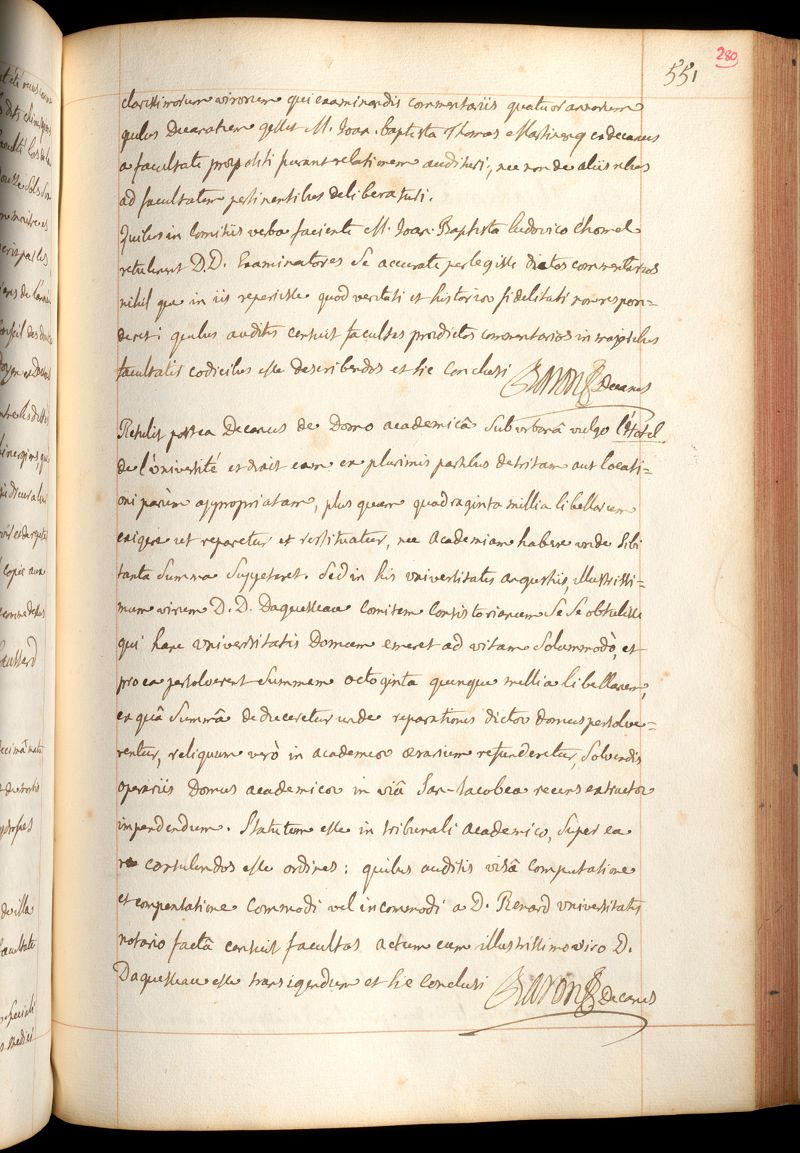 280
551
clarissimorum virorum qui examinandis commentariis quatuor annorum
quibus Decanatum gessit M. Joan. Baptista Thomas Martinenq exdecanus
a facultate præpositi fuerant relationem auditura, nec non de aliis rebus
ad facultatem pertinentibus deliberatura.
Quibus in Comitiis verba faciente M. Joan. Baptista Ludovico Chomel
retulerunt D.D. Examinatores se accurate perlegisse dictos commentarios
nihil que in iis reperiisse quod veritati et historicæ fidelitati non respon=
deret; quibus auditis censuit facultas prædictos commentarios in majoribus
facultatis codicibus esse describendos et sic Conclusi Baron Decanus
Retulit postea Decanus de Domo academicâ suburbanâ vulgo l'Hotel
de l'université et dixit eam ex plurimis partibus detritam aut locati=
oni parùm appropriatam, plus quam quadraginta millia libellarum
exigere ut reparetur et restituatur, nec Academiam habere unde sibi
tanta summa suppeteret. Sed in his universitatis angustiis, illustrissi=
mum virum D.D. Daguesseau Comitem Consistorianum se se obtulisse
qui hanc universitatis Domum emeret ad vitam solummodò, et
pro ea persolveret summam octoginta quinque millia libellarum,
ex quâ summâ deduceretur unde reparationes dictæ domus persolve=
rentur, reliquum verò in academicæ ærarium refunderetur, solvendis
operariis Domus academicæ in viâ San-Jacobea recens extructæ
impendendum. Statutum esse in tribunali academico, super ea
re consulendos esse ordines: quibus auditis visâ computatione
et compensatione commodi vel incommodi a D. Renard universitatis
notario factâ censuit facultas actum cum illustrissimo viro D.
Daguesseau esse transigendum et sic Conclusi Baron Decanus